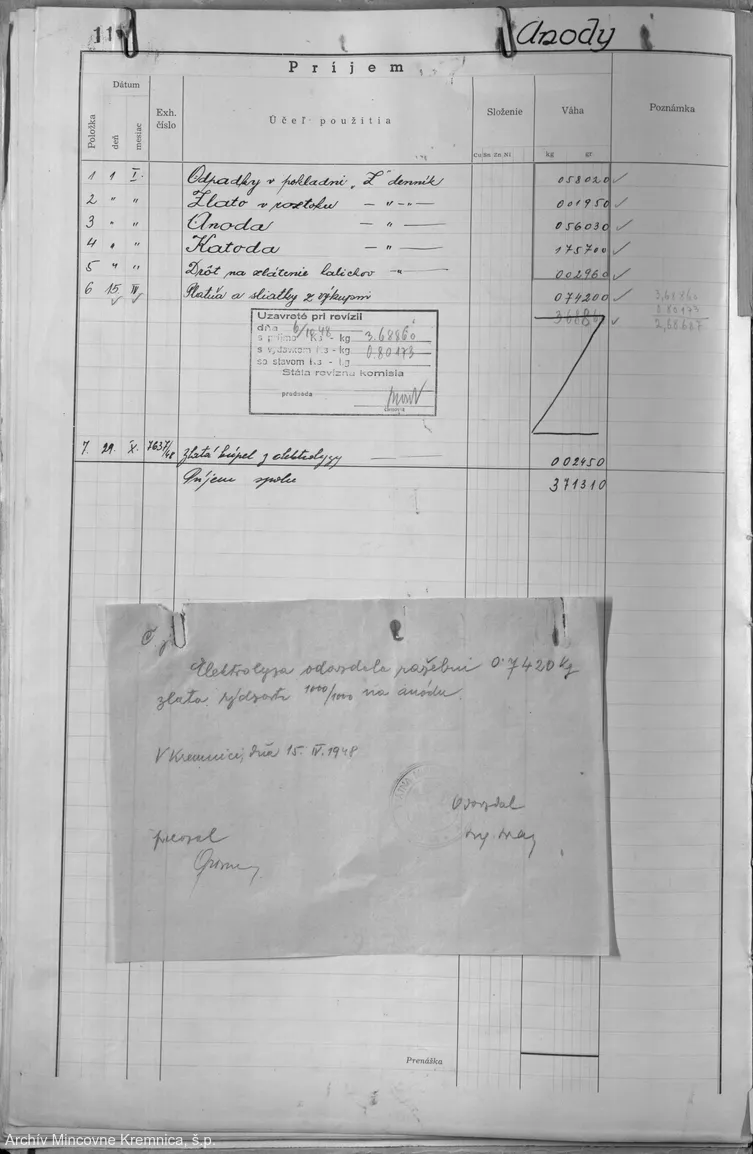 11
Anody
Príjem
Položka
Dátum
deň
mesiac
Exh. číslo
Účeľ použitia
Složenie
Cu Sn Zn Ni
Váha
kg gr
Poznámka
1 1 I. Odpadky v pokladni „Z" denník 058020
2 " " Zlato v roztoku — " — 001950
3 " " Anoda — " — 056030
4 " " Katoda — " — 175700
5 " " Drôt na zlátenie kalichov — " — 002960
6 15. IV. a sliatky z výkupni 074200
3,68860
0.80173
2,88687
36886
Uzavreté pri revízii
dňa 6/10.48
s príjmo Ks - kg 3.68860
s výdavkom Ks - kg 0.80173
so stavom Ks - kg
Stála revízna komisia
predseda
členovia
7. 29. X. 7637/48 Zlatá kúpel z elektrolyzy — 002450
Príjem spolu 371310
Elektrolyza odovzdala 0.7420 kg
zlata rýdzosti 1000/1000 na anódu.
V Kremnici, dňa 15. IV. 1948
Odovzdal
prevzal
Prenáška
Archív Mincovne Kremnica, š.p.